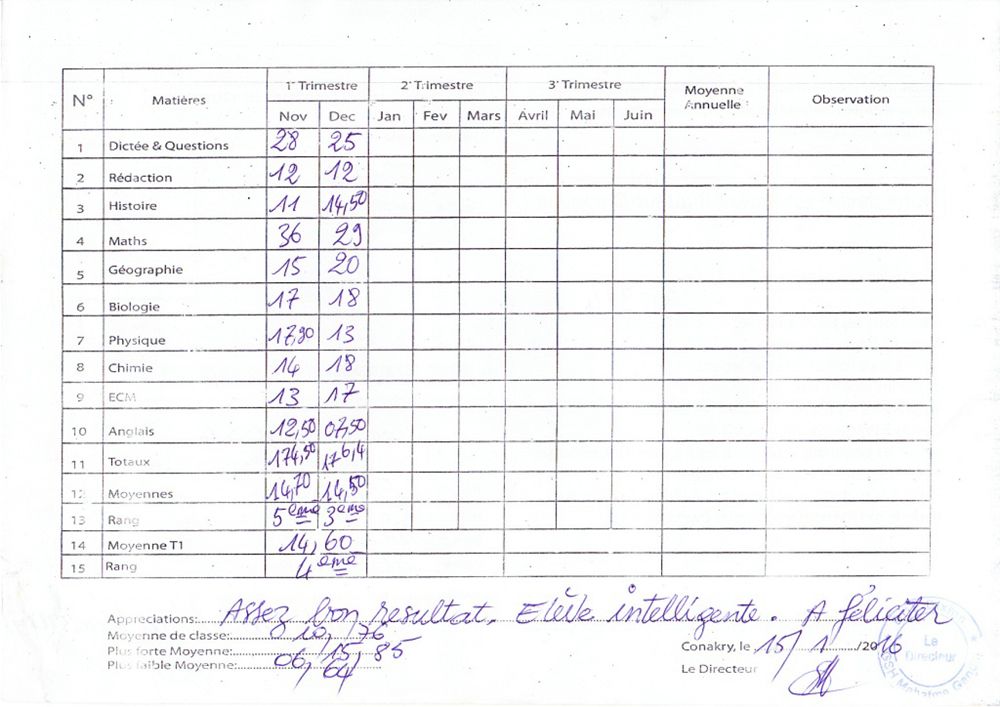 N° Matières 1e Trimestre 2e Trimestre 3e Trimestre Moyenne Annuelle : Observation
Nov Dec Jan Fev Mars Avril Mai Juin
1 Dictée & Questions 28 25
2 Rédaction 12 12
3 Histoire 11 14,50
4 Maths 36 29
5 Géographie 15 20
6 Biologie 17 18
7 Physique 17,90 13
8 Chimie 14 18
9 ECM 13 17
10 Anglais 12,50 07,50
11 Totaux 174,50 176,4
12 Moyennes 14,70 14,50
13 Rang 5eme 3eme
14 Moyenne T1 14,60
15 Rang 4eme
Appreciations: Assez bon resultat. Elève intelligente. A féliciter
Moyenne de classe: 10,76
Plus forte Moyenne: 15,85
Plus faible Moyenne: 06,64
Conakry, le 15/1/2016
Le Directeur
Le Directeur